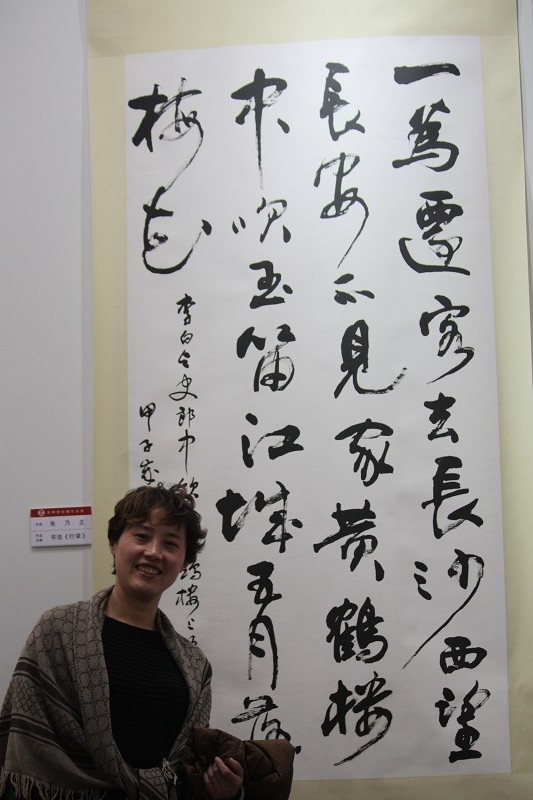 一為遷客去長沙西望
長安不見家黄鶴楼
中吹玉笛江城五月落
梅花
李白与史郎中欽
鶴楼上
甲子歲
朱乃正
书法《行草》